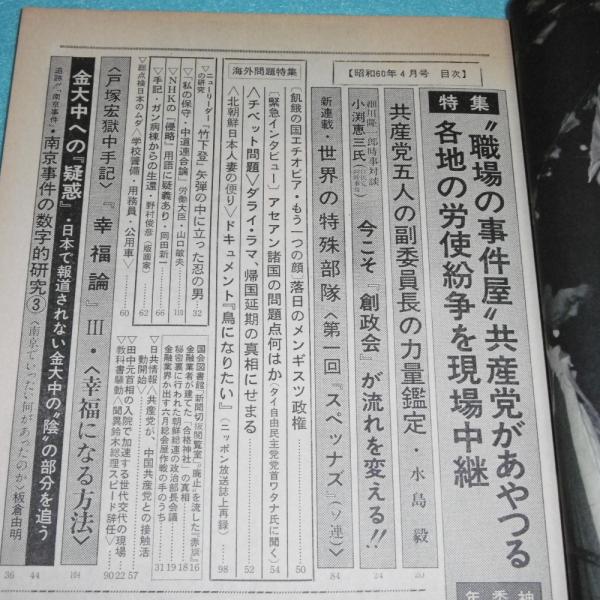 【昭和60年4月号 目次】
特集
〝職場の事件屋〟共産党があやつる
各地の労使紛争を現場中継
共産党五人の副委員長の力量鑑定・水島毅
20
細川隆一郎時事対談
小渕恵三氏
今こそ『創政会』が流れを変える!!
24
新連載・世界の特殊部隊〈第一回『スペッナズ』(ソ連)〉
84
海外問題特集
飢餓の国エチオピア・もう一つの顔 落日のメンギスツ政権
50
〔緊急インタビュー〕アセアン諸国の問題点何はか(タイ自由民主党党首ワタナ氏に聞く)
54
〈チベット問題〉ダライ・ラマ、帰国延期の真相にせまる
52
〈北朝鮮日本人妻の便り〉ドキュメント『鳥になりたい』(ニッポン放送誌上再録)
98
▽ニューリーダーの研究
『竹下登』矢弾の中に立った忍の男
32
▽『私の保守・中道連合論』労働大臣・山口敏夫
118
▽NHKの「侵略」用語に疑義あり・岡田新一
66
▽手記・ガン病棟からの生還・野村俊彦(版画家)
62
▽総点検日本のムダ〈学校警備・用務員・公用車〉
60
国会図書館〝新聞切抜閲覧室〟廃止を流した『赤旗』
16
金融業者が建てた「合格神社」の真相
18
秘密裏に行われた朝鮮総連の政治部長会議
19
金融業界か出す六月総会屋作戦の手のうち
31
▽日共情報〈共産党が、中国共産党との接触活動開始〉
57
▽田中元首相の入院で加速する世代交代の現場
22
▽教科書騒動〈聞異鈴木総理スピード辞任〉
90
〈戸塚宏獄中手記〉『幸福論』Ⅲ・〈幸福になる方法〉
104
金大中への『疑惑』・日本で報道されない金大中の〝陰〟の部分を追う
44
追跡「南京事件」・南京事件の数字的研究③〈南京でいったい何があったのか〉板倉由明
36